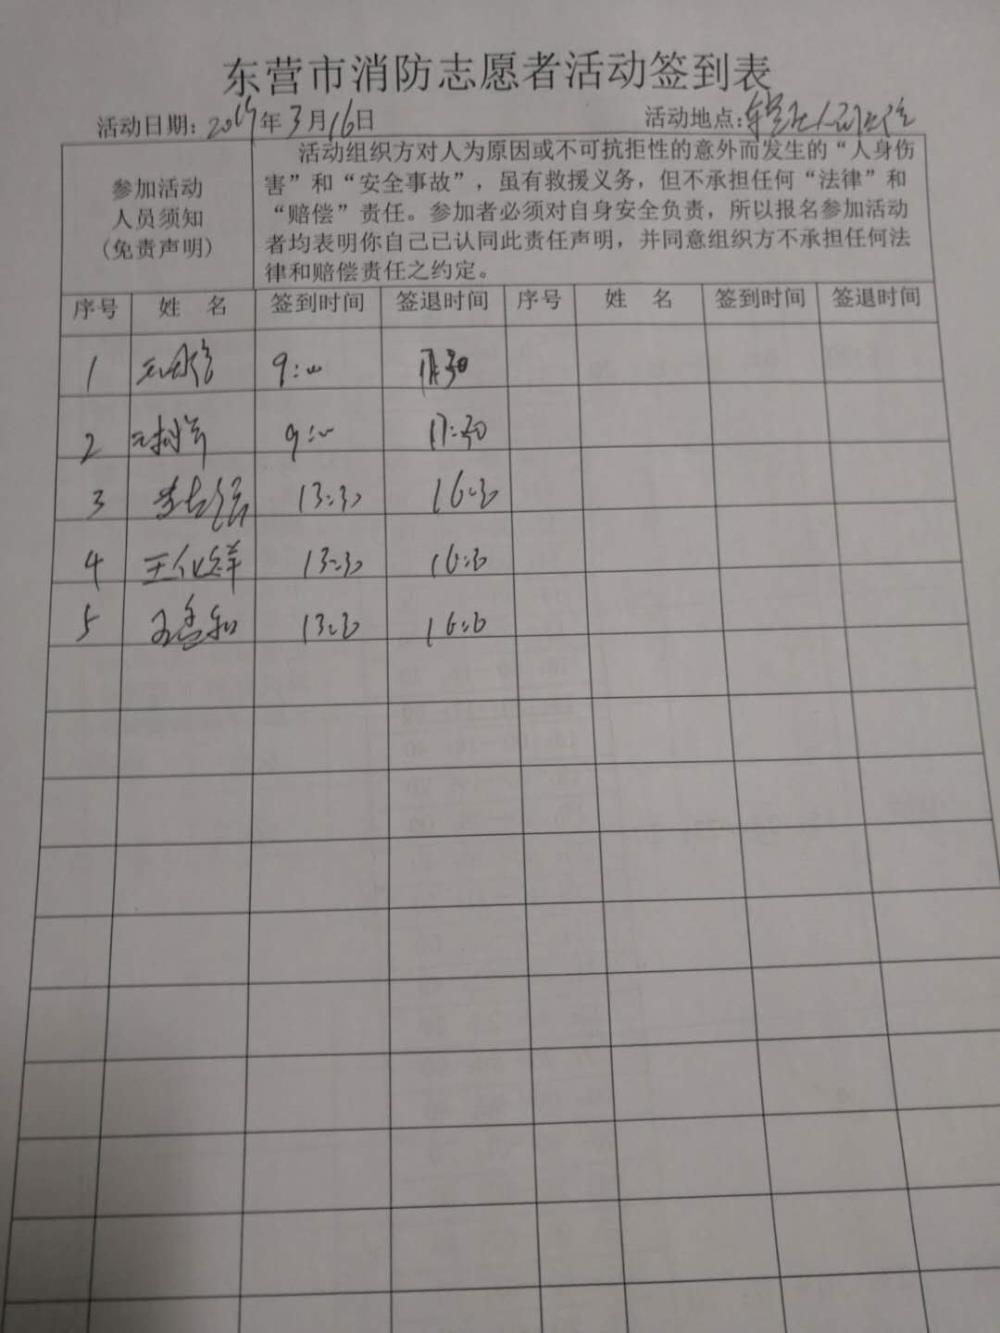 东营市消防志愿者活动签到表
活动日期：2019年3月16日 活动地点：
参加活动
人员须知
(免责声明)
活动组织方对人为原因或不可抗拒性的意外而发生的“人身伤
害”和“安全事故”，虽有救援义务，但不承担任何“法律”和
“赔偿”责任。参加者必须对自身安全负责，所以报名参加活动
者均表明你自己已认同此责任声明，并同意组织方不承担任何法
律和赔偿责任之约定。
序号 姓 名 签到时间 签退时间 序号 姓 名 签到时间 签退时间
1 9:00 11:30
2 9:00 17:30
3 13:30 16:30
4 王化祥 13:30 16:30
5 13:30 16:30